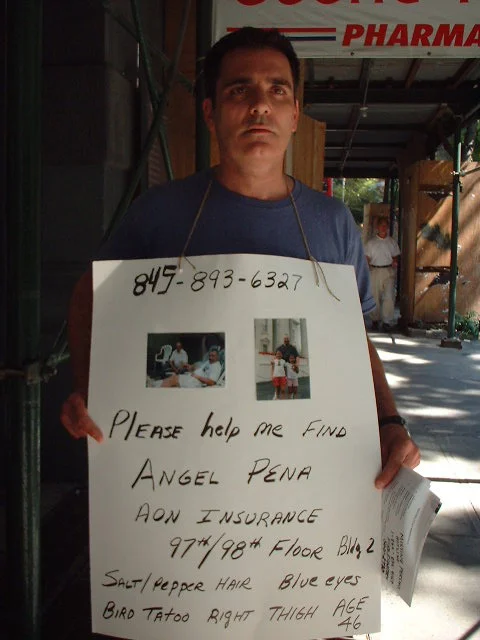 PHARMA
845-893-6327
PLEASE help me FIND
ANGEL PENA
AON INSURANCE
97th/98th FLOOR Bldg 2
SALT/PEPPER HAIR Blue eyes
BIRD TATOO RIGHT THIGH AGE 46